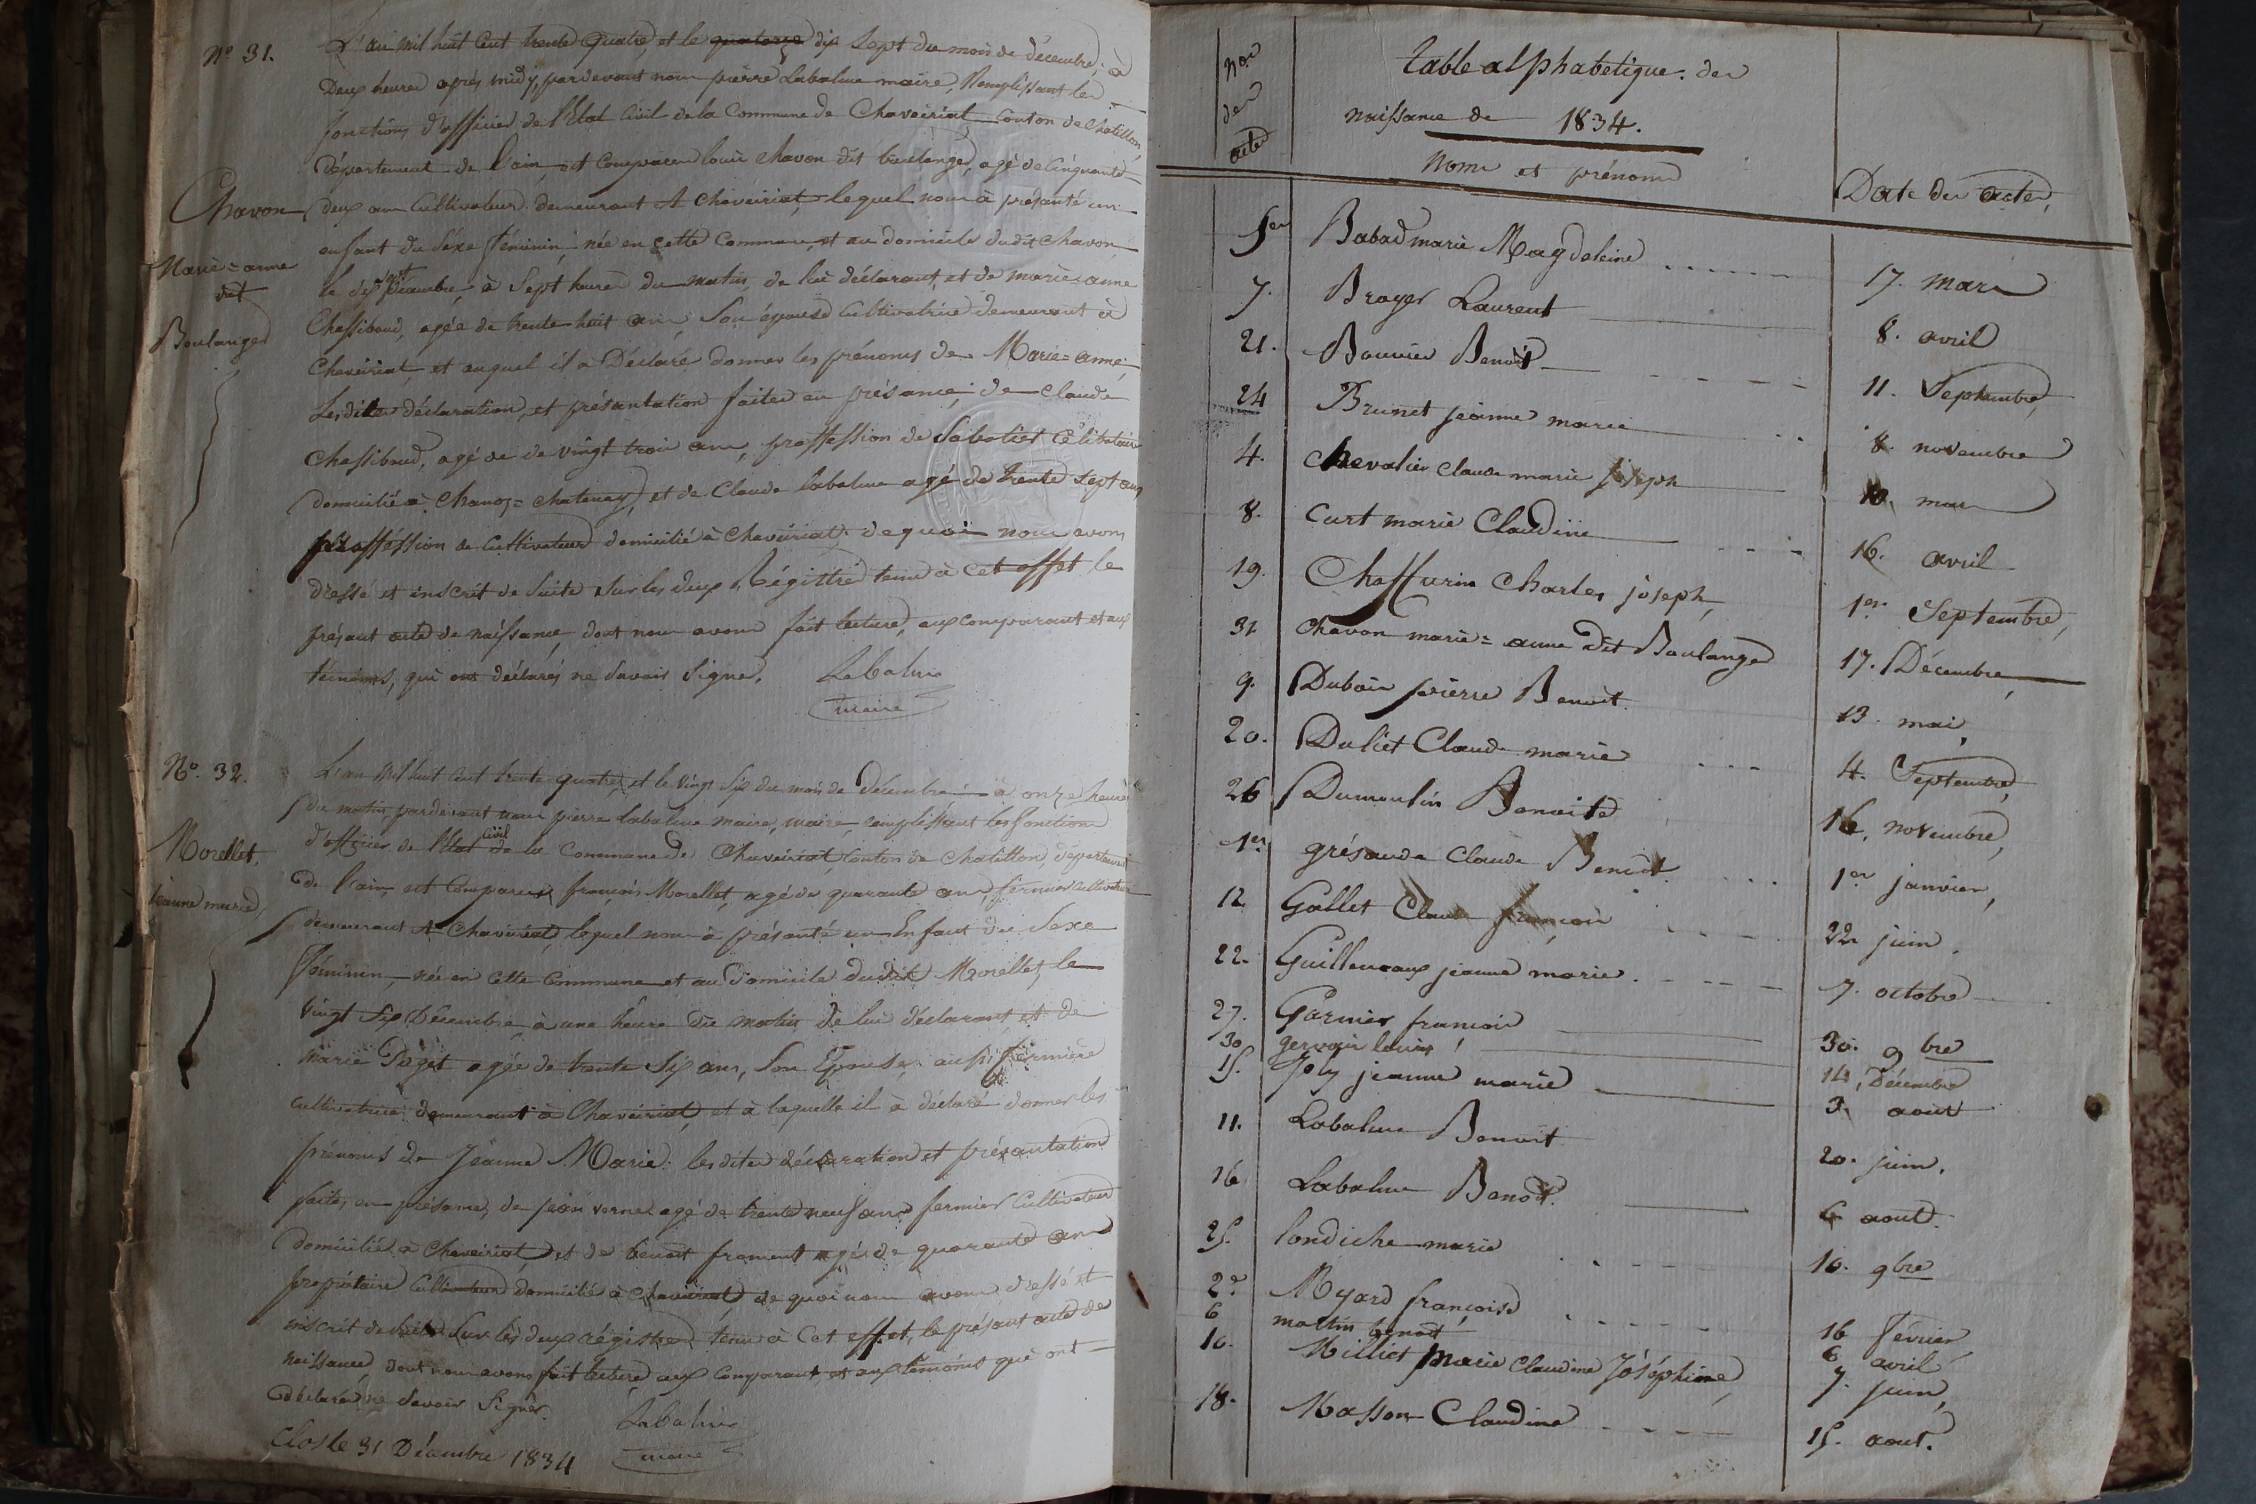 N° 31.
L'an mil huit cent trente quatre, et le quatorze dix sept du mois de décembre, à
Deux heures après midy, pardevant nous pierre Labalme maire, Remplissant les
fonctions d'officier de l'Etat Civil de la Commune de Chaveiriat Canton de Chatillon,
Département de l'ain, est comparu louis Chavon dit boulanger, agé de Cinquante
Chavon
deux ans Cultivateur demeurant A Chaveiriat, lequel nous à présanté un
enfant du Séxe féminin, née en cette Commune, et au domicile dudit Chavon
Marie=anne
le dix sept Décembre, à Sept heures du matin, de lui déclarant, et de marie=anne
dit
Boulanger
Chassiboud, agée de trente huit ans, Son épouse Cultivatrice demeurant à
Chaveiriat, et auquel il a Déclaré donner les prénoms de Marie=anne,
Lesdites déclaration, et présantation faites en présance, de Claude
Chassiboud, agé de de vingt trois ans, proffession de Sabotier Célibataire
domicilié à Chanoz=Chatenay, et de Claude labalme agé de trente sept ans
proffession de Cultivateur domicilié à Chaveiriat, de quoi nous avons
dressé et inscrit de Suite Sur les deux Régistres tenus à cet effet le
présant acte de naissance, dont nous avons fait lecture, aux comparant et aux
témoins, qui ont déclarés ne Savoir Signer.
Labalme
maire
N° 32.
L'an Mil huit Cent trente quatre, et le vingt Six du mois de Décembre à onze heures
du matin, pardevant nous pierre labalme maire, maire, remplissant les fonctions
d'officier de l'Etat Civil de la Commune de Chaveiriat, Canton de Chatillon, département
Morellet,
de l'ain, est Comparu, françois Morellet, agé de quarante ans, fermier Cultivateur
jeanne marie,
demeurant A Chaveiriat, lequel nous à présanté un Enfant du Sexe
féminin, née en cette Commune et au Domicile dudit Morellet, le
vingt Six Décembre à une heure du matin de lui déclarant, et de
marie Paget agée de trente Six ans, Son Epouse, aussi fermière
Cultivatrice demeurant à Chaveiriat, et à laquelle il à déclaré donner les
prénoms de Jeanne Marie: lesdites déclaration et présantation
faites en présance, de jean verne agé de trente neuf ans fermier Cultivateur
domicilié à Chaveiriat, et de benoit froment agé de quarante ans
propriétaire Cultivateur domicilié à Chaveiriat de quoi nous avons dressé et
inscrit de Suite Sur les deux régistres tenus à Cet effet, le présant acte de
naissance, dont nous avons fait lecture, aux Comparant, et aux témoins qui ont
déclarés ne Savoir Signer.
Labalme
maire
Clos le 31 Décembre 1834
Nos des actes
table alphabétique des
naissance de 1834.
Noms et prénoms
Date des actes,
5. Babad marie Magdeleine 17. mars
7. Broyer Laurent 8. avril
21. Bouvier Benoît 11. Septembre,
24 Brunet jeanne marie 8. novembre
4. Chevalier claude marie joseph 10. mars
8. Curt marie Claudine 16. avril
19. Chaffurin Charles joseph, 1er Septembre,
31 Chavon marie=anne dit Boulanger 17. Décembre,
9. Dubois pierre Benoit. 13. mai,
20. Duliet Claude marie 4. Septembre,
26 Dumoulin Benoite 16. novembre,
1er grésaude Claude Benoit. 1er janvier,
12 Gallet Claude françois 22 juin.
22. Guillemaux jeanne marie. 7. octobre
27. Garnier françois 30. 9bre
30 gervais louis 14, Décembre
15. Joly jeanne marie 3. aout
11. Labalme Benoit 20. juin.
16 Labalme Benoit. 6 aout.
25. londiche marie 10. 9bre
2e Myard françoise 16 février
6 martin benoit 6 avril
10. Milliet marie Claudine Joséphine, 7. juin,
18. Masson Claudine 15. aout.